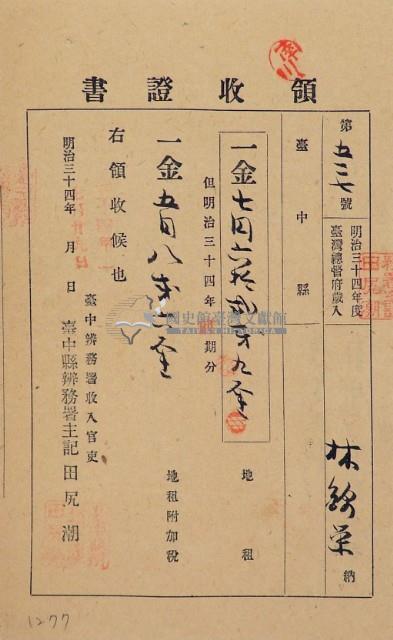 領收證書
第五三七號
明治三十四年度
臺灣總督府歲入
臺中縣
林錦榮 納
一金七円六拾貳才九厘 地租
但明治三十四年 期分
一金五円八 厘 地租附加稅
右領收候也
明治三十四年 月 日
臺中辨務署收入官吏
臺中縣辨務署主記田尻潮
南川
國史館臺灣文獻館
TAIWAN HISTORICA
1277